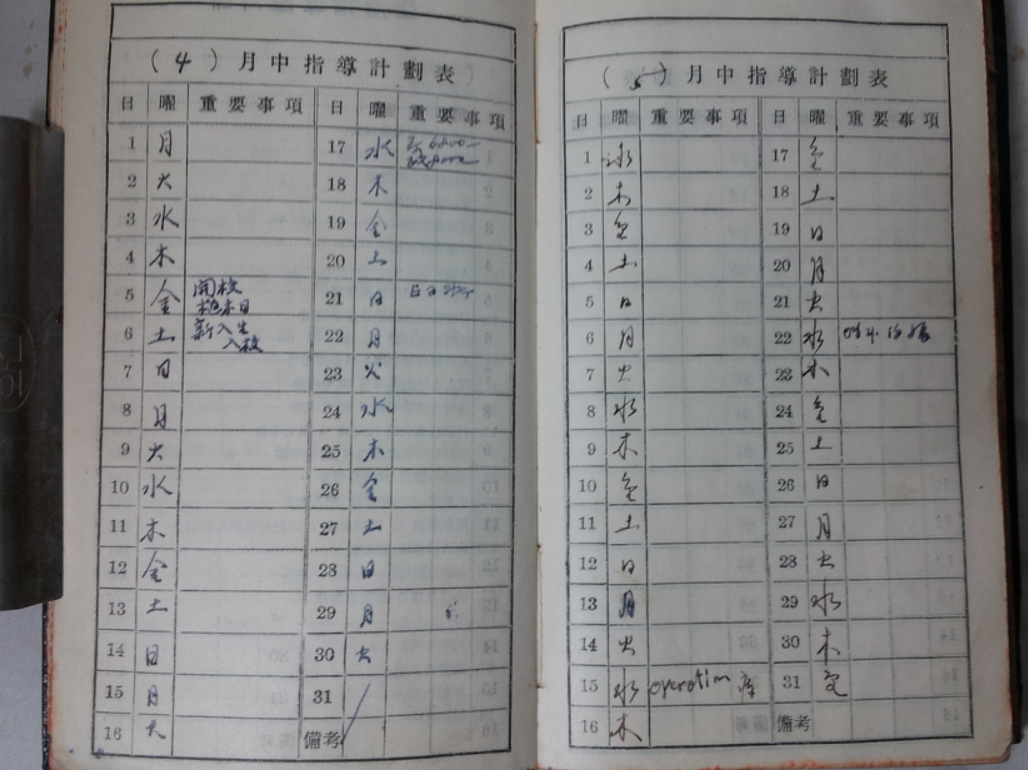 （4）月中指導計劃表
日 曜 重要事項 日 曜 重要事項
1 月 17 水
2 火 18 木
3 水 19 金
4 木 20 土
5 金 開校 21 日
6 土 新入生 入校 22 月
7 日 23 火
8 月 24 水
9 火 25 木
10 水 26 金
11 木 27 土
12 金 28 日
13 土 29 月
14 日 30 火
15 月 31
16 火 備考
（5）月中指導計劃表
日 曜 重要事項 日 曜 重要事項
1 水 17 金
2 木 18 土
3 金 19 日
4 土 20 月
5 日 21 火
6 月 22 水
7 火 23 木
8 水 24 金
9 木 25 土
10 金 26 日
11 土 27 月
12 日 28 火
13 月 29 水
14 火 30 木
15 水 operation 31 金
16 木 備考